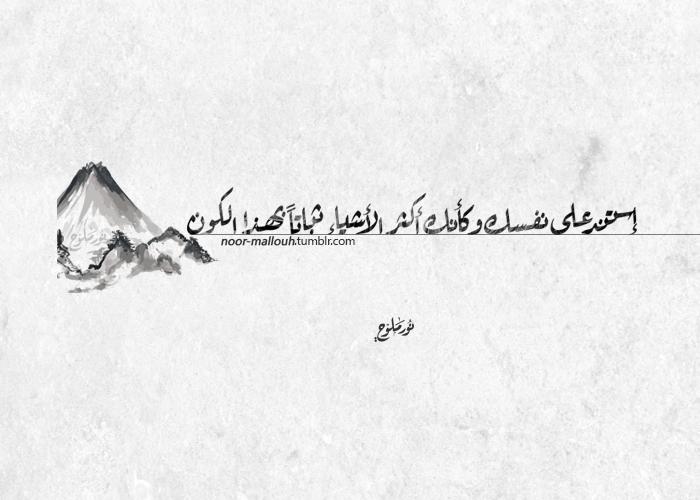 إستند على نفسك وكأنك أكثر الأشياء ثباتاً بهذا الكون
noor-mallouh.tumblr.com
نور ملوح